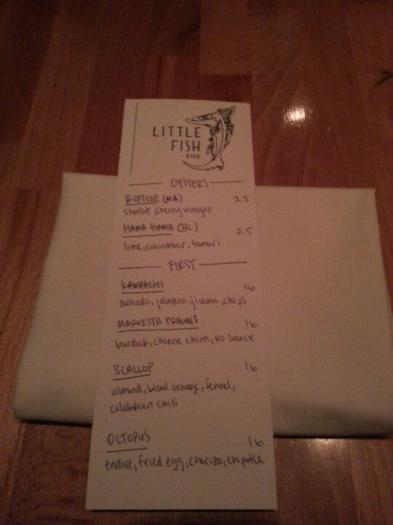 LITTLE
FISH
BYOB
OYSTERS
RIPTIDE (MA) 2.5
shallot sherry vinegar
HAMA HAMA (BC) 2.5
lime, cucumber, tamari
FIRST
KAMPACHI 16
avocado, jalapeno, jicama, chips
MARVESTA PRAWNS 16
burdock, chinese chive, xo sauce
SCALLOP 16
almond, blood orange, fennel,
calabrian chili
OCTOPUS 16
endive, fried egg, chorizo, chipotle